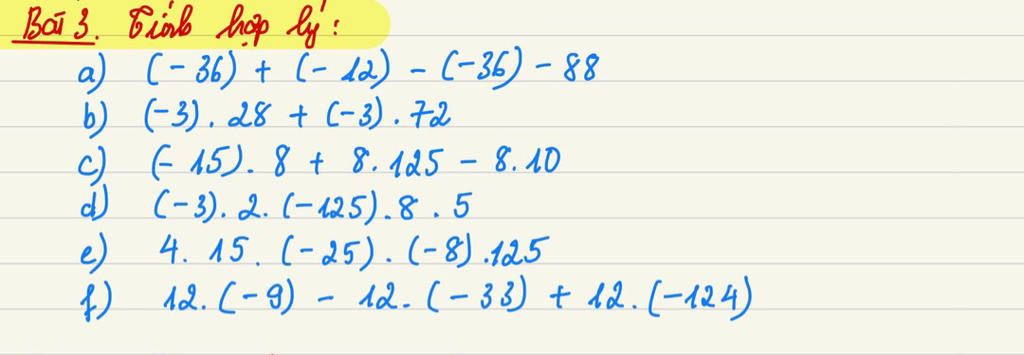 Bài 3. Tính hợp lý:
a) (-36) + (-12) - (-36) - 88
b) (-3). 28 + (-3). 72
c) (-15). 8 + 8. 125 - 8. 10
d) (-3). 2. (-125). 8 . 5
e) 4. 15. (-25). (-8). 125
f) 12. (-9) - 12. (-33) + 12. (-124)